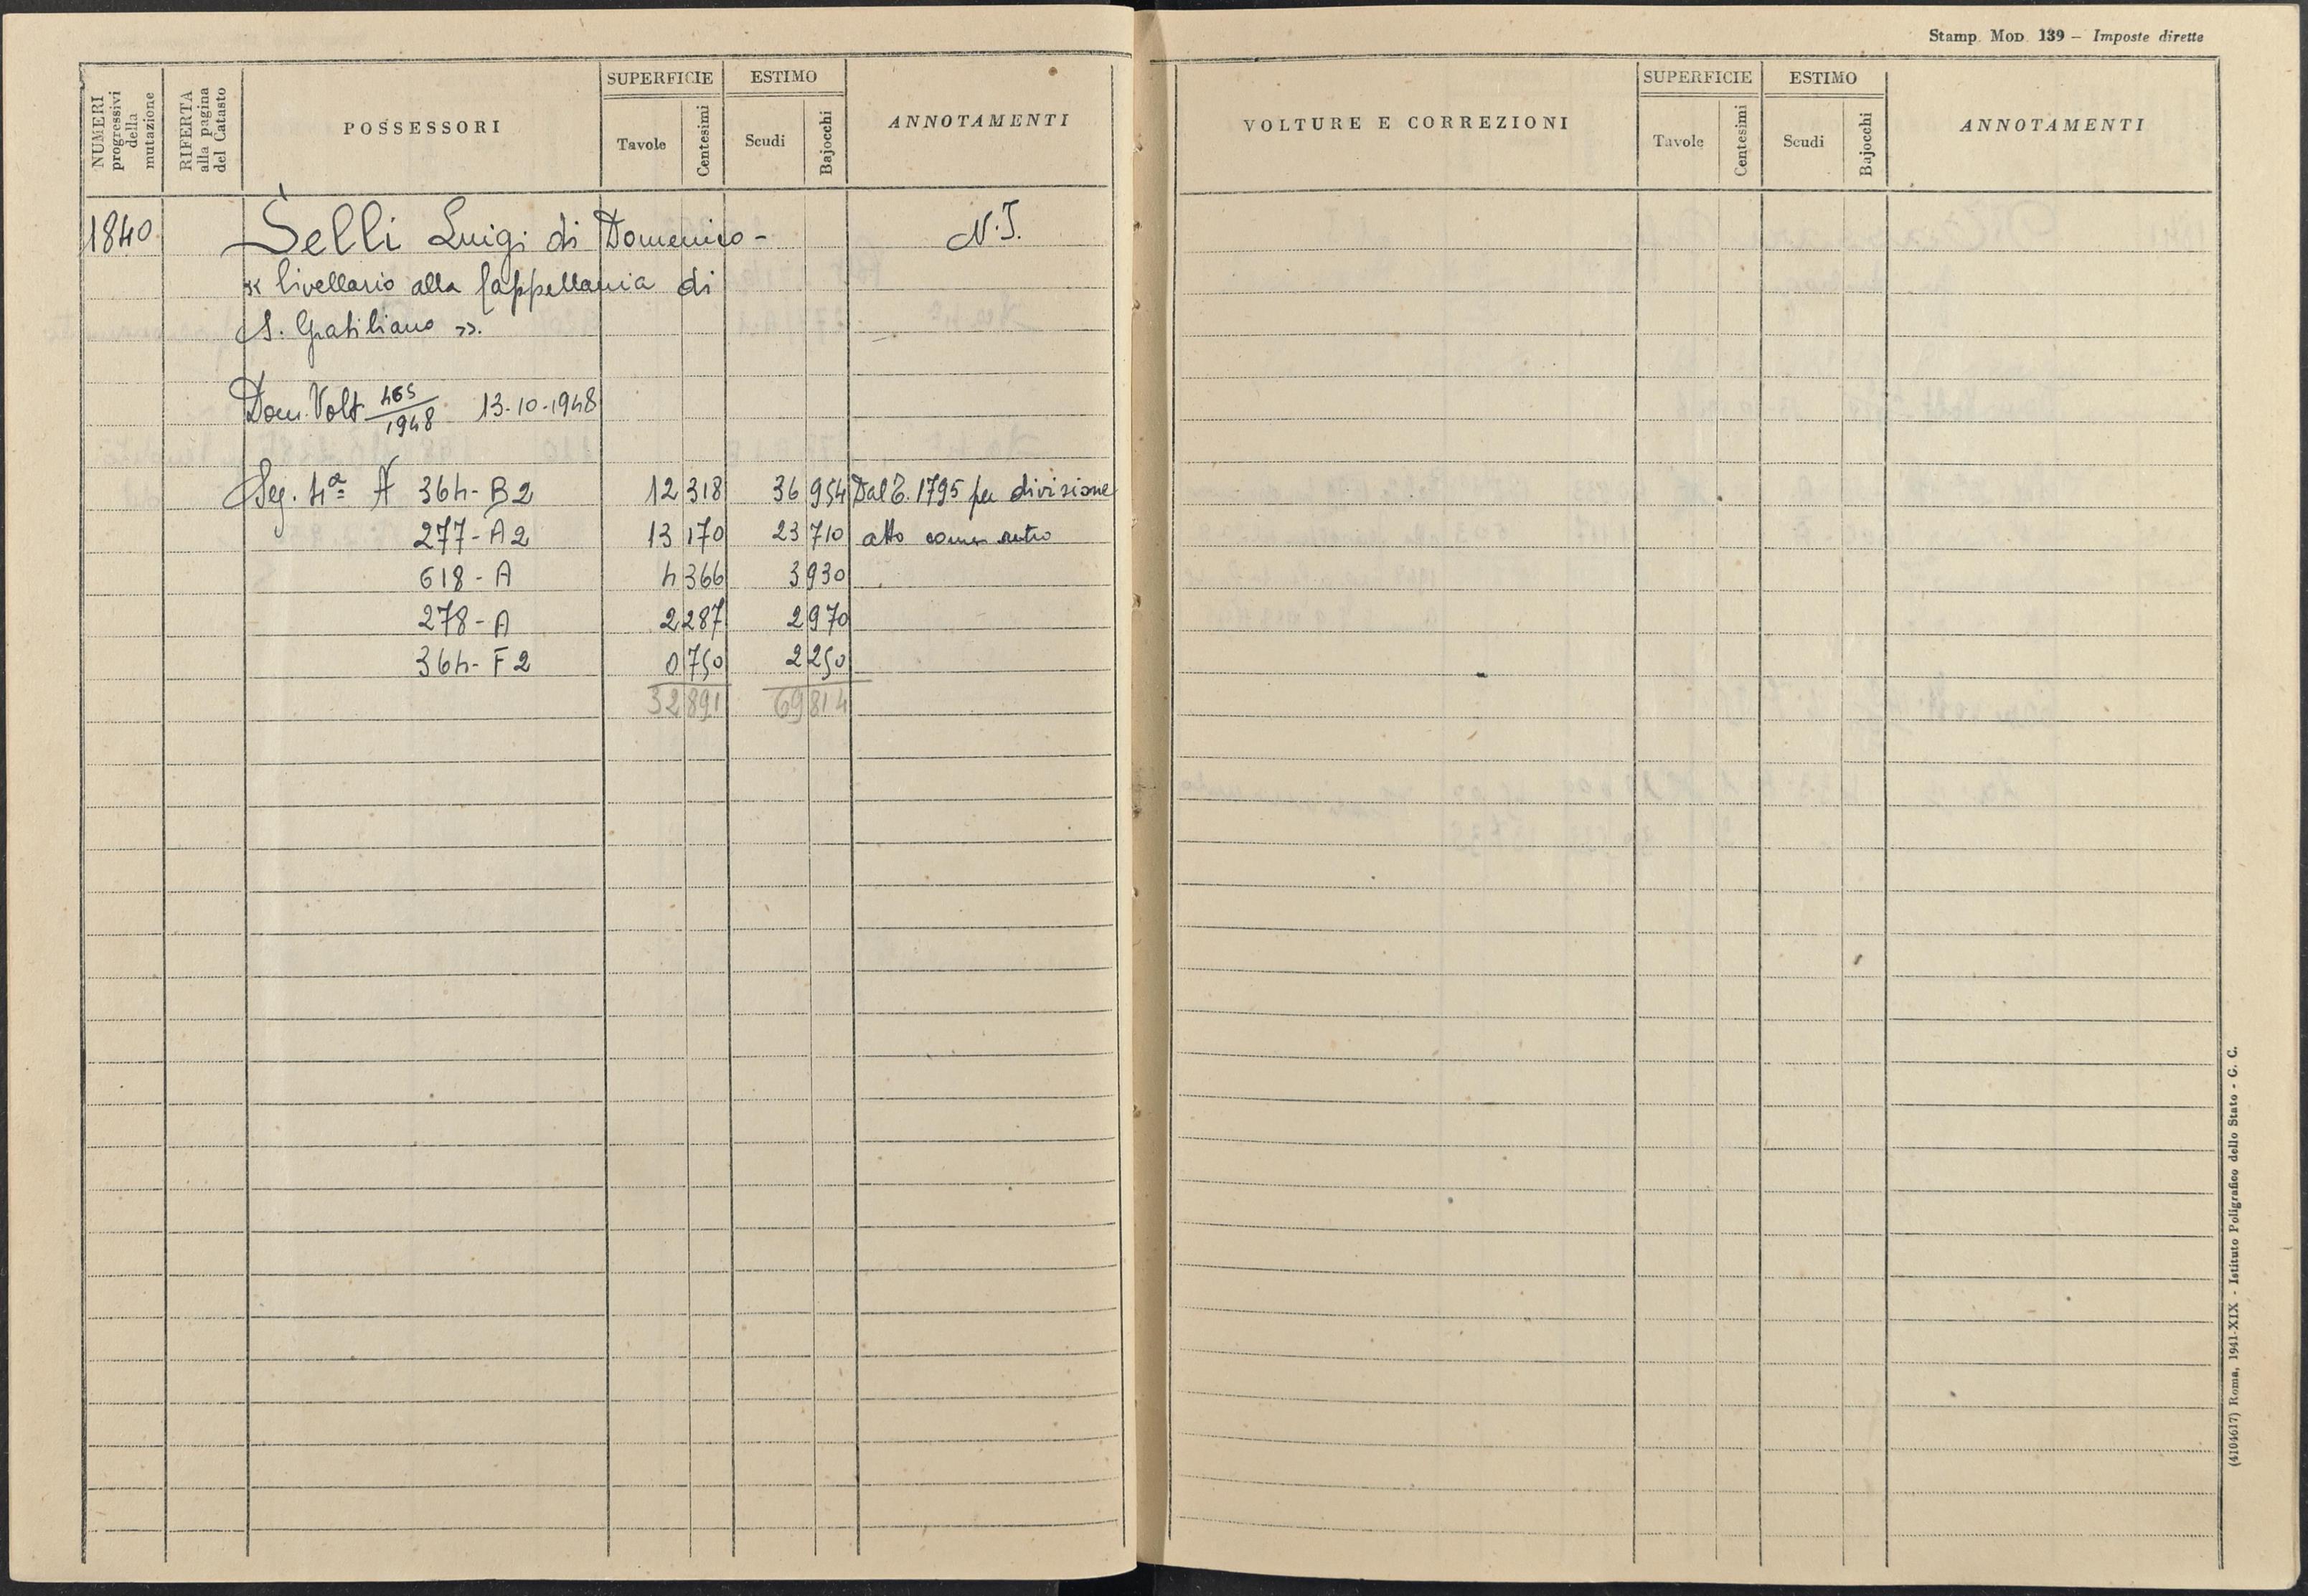 Stamp. MOD. 139 – Imposte dirette
NUMERI progressivi della mutazione
RIFERTA alla pagina del Catasto
POSSESSORI
SUPERFICIE
Tavole
Centesimi
ESTIMO
Scudi
Bajocchi
ANNOTAMENTI
VOLTURE E CORREZIONI
SUPERFICIE
Tavole
Centesimi
ESTIMO
Scudi
Bajocchi
ANNOTAMENTI
1840 Selli Luigi di Domenico - N.I.
« livellario alla Cappellania di
S. Gratiliano ».
Dom. Volt 465/1948 13-10-1948
Seg. 4ª N 364-B2 12 318 36 954 Dal C. 1795 per divisione
277-A2 13 170 23 710 atto come retro
618-A 4 366 3 930
278-A 2 287 2 970
364-F2 0 750 2 250
32 891 69 814
(4104617) Roma, 1941-XIX - Istituto Poligrafico dello Stato - G. C.